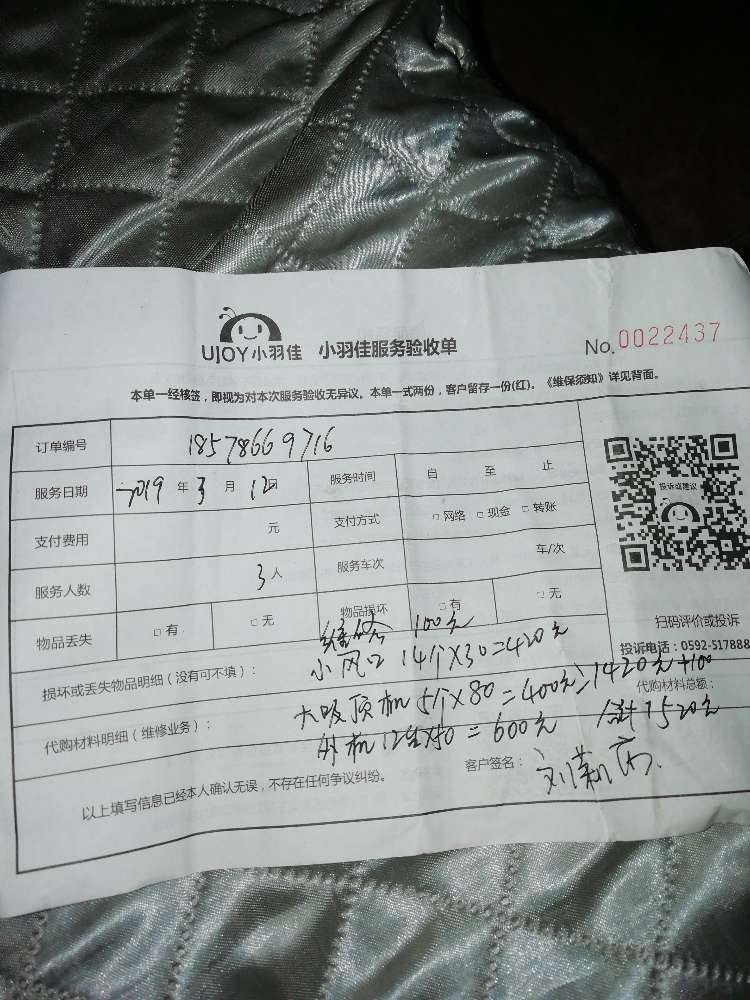 UJOY小羽佳 小羽佳服务验收单 No.0022437
本单一经核签，即视为对本次服务验收无异议。本单一式两份，客户留存一份(红)。《维保须知》详见背面。
订单编号 18578669716
服务日期 2019年3月12日 服务时间 自 至 止
支付费用 元 支付方式 □网络 □现金 □转账
服务人数 3人 服务车次 车/次
物品丢失 □有 □无 物品损坏 □有 □无
投诉或建议
扫码评价或投诉
投诉电话：0592-517888
维修 100元
损坏或丢失物品明细（没有可不填）： 小风口 14个X30=420元
代购材料明细（维修业务）： 大吸顶机 5个X80=400元 =1420元+100
代购材料总额：
外机12台X50=600元 合计1520元
以上填写信息已经本人确认无误，不存在任何争议纠纷。 客户签名： 刘